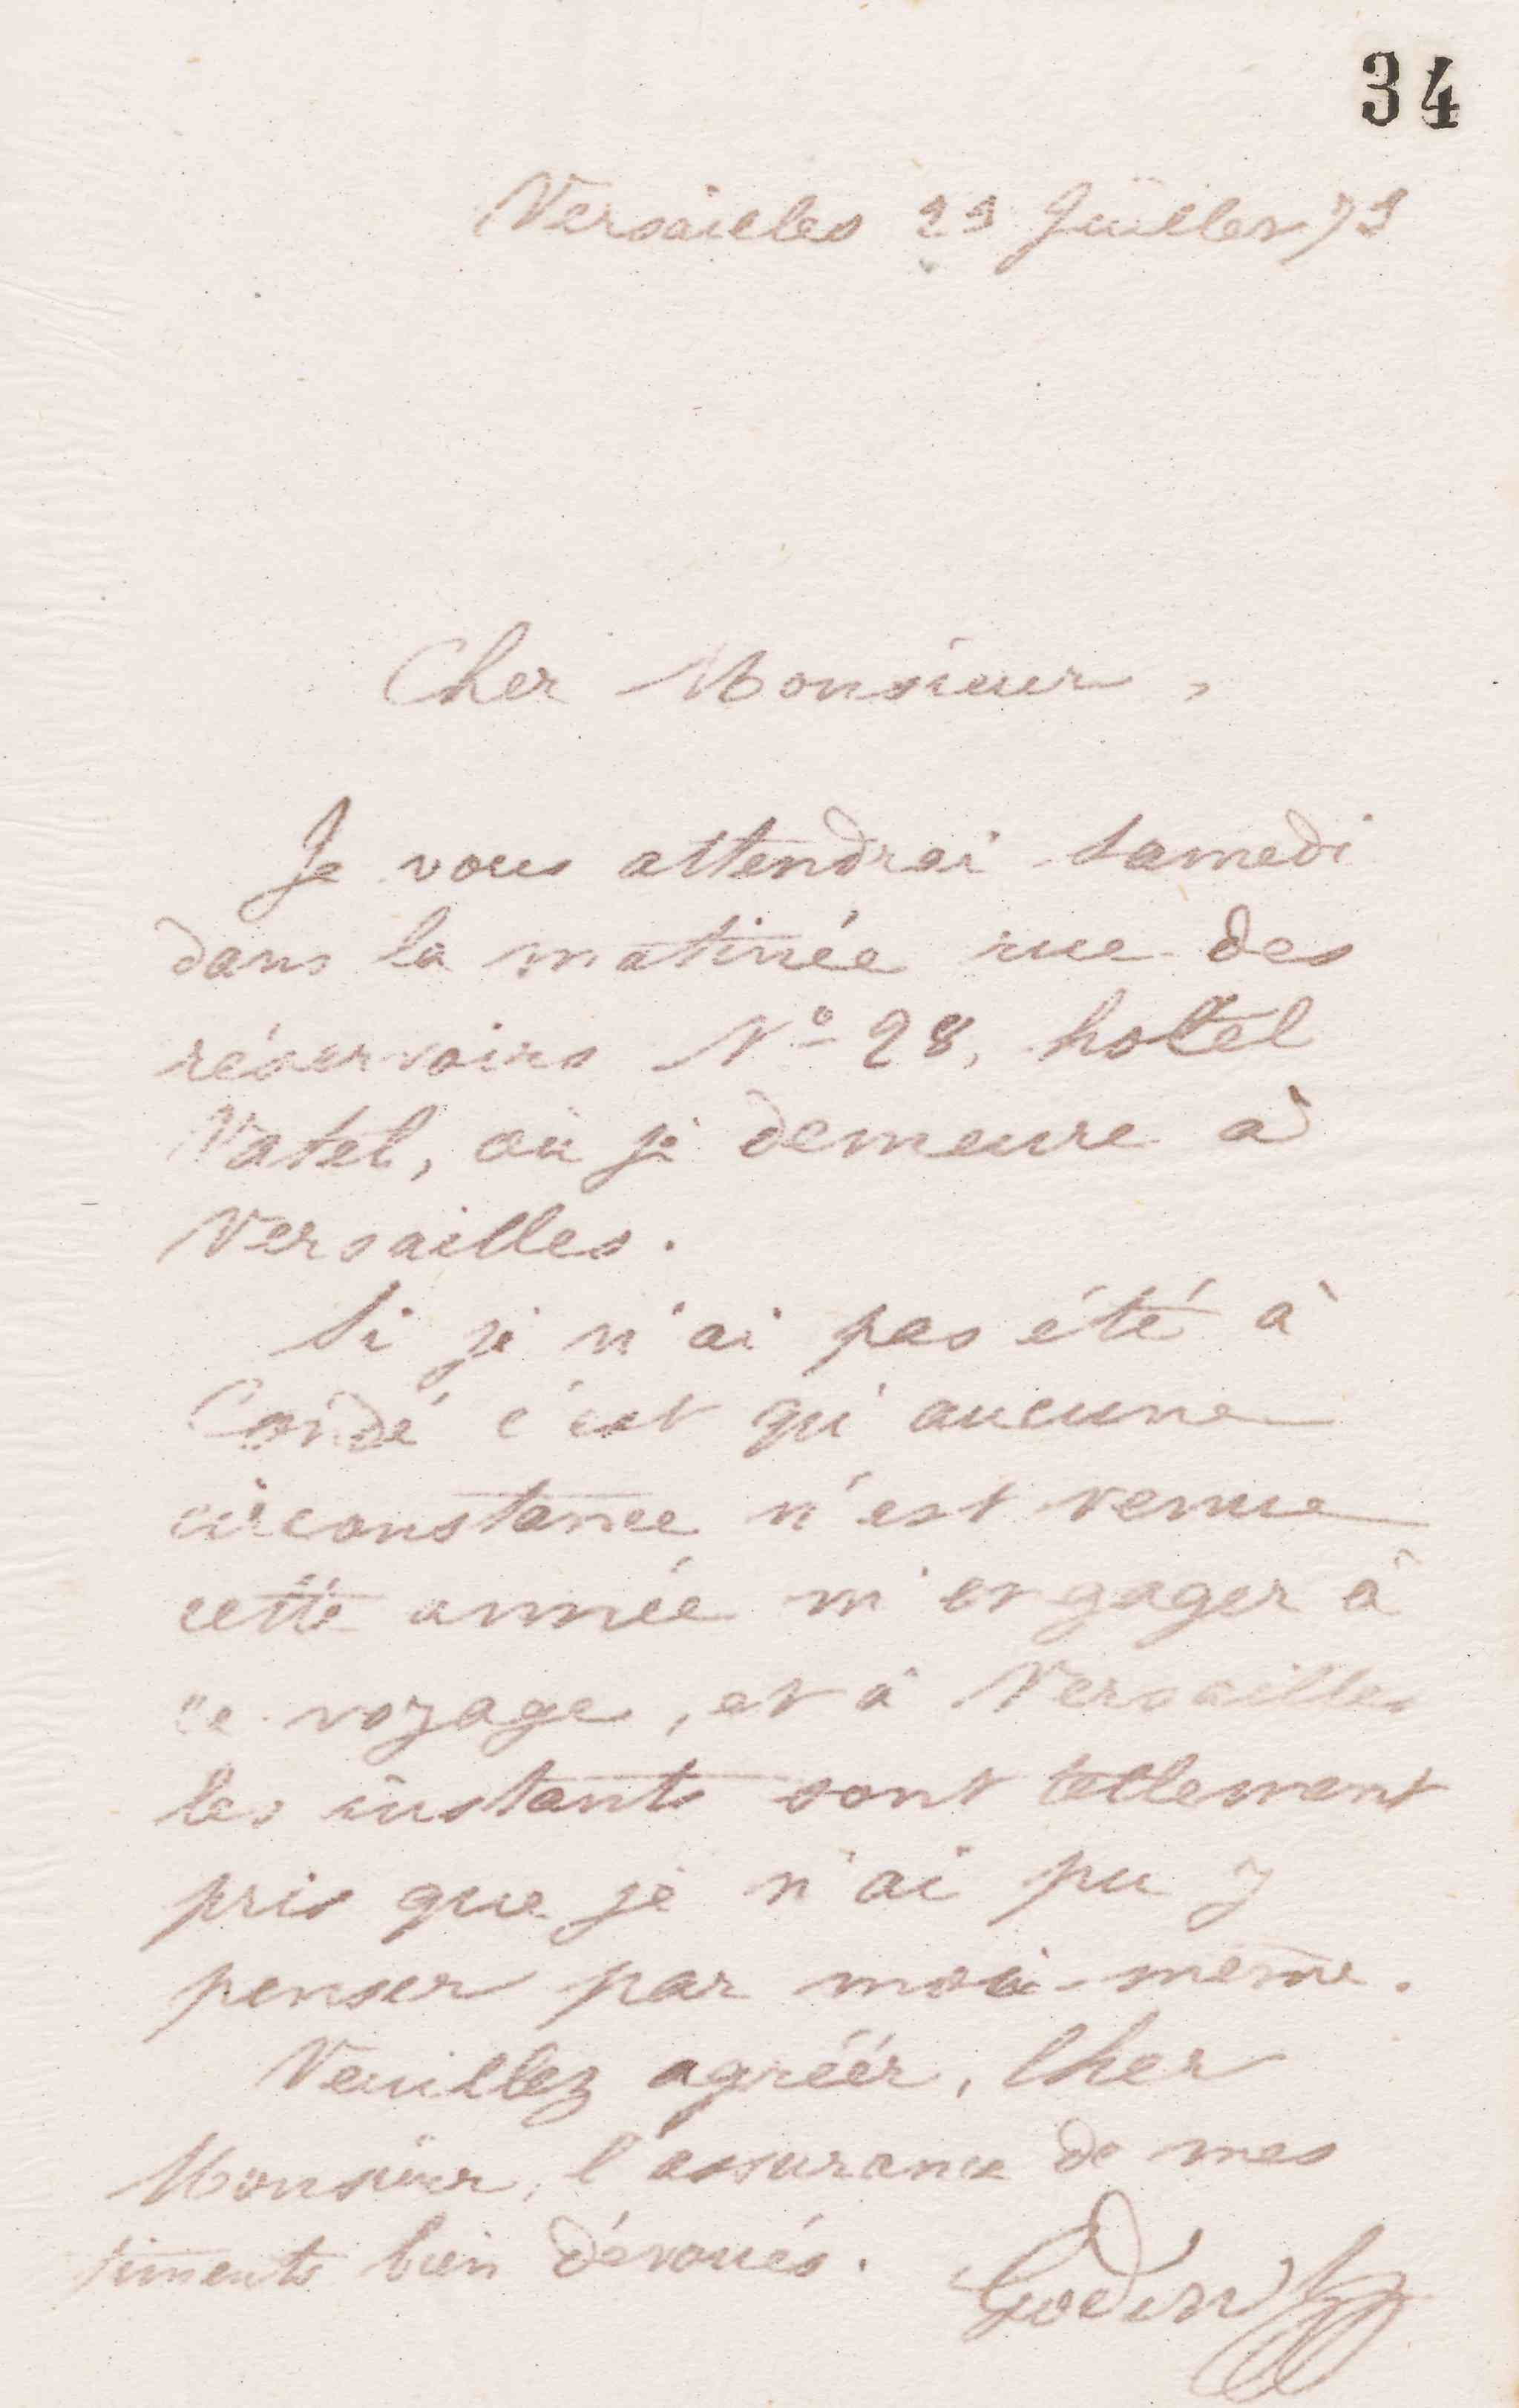 34
Versailles 23 Juillet 73
Cher Monsieur,
Je vous attendrai samedi
dans la matinée rue des
réservoirs N° 28, hotel
Vatel, où je demeure à
Versailles.
Si je n'ai pas été à
Condé c'est qu'aucune
circonstance n'est venue
cette année m'engager à
ce voyage, et à Versailles
les instants sont tellement
pris que je n'ai pu y
penser par moi-même.
Veuillez agréér, Cher
Monsieur, l'assurance de mes
timents bien dévoués.
Godin